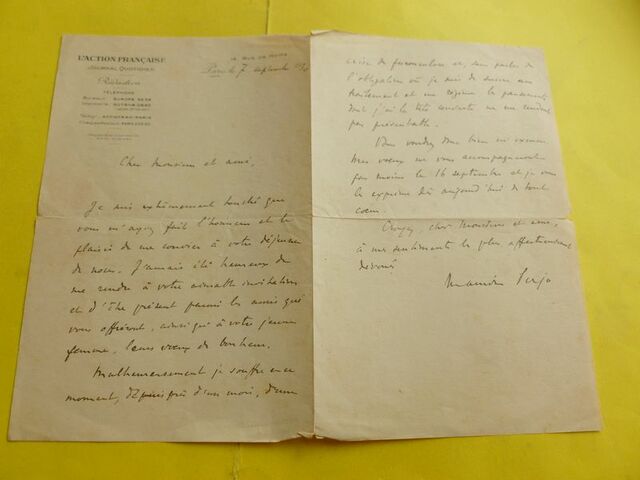 L'ACTION FRANÇAISE
JOURNAL QUOTIDIEN
Rédaction
TÉLÉPHONE
14 RUE DE ROME
Paris, le 7 septembre
Cher Monsieur et ami,
Je suis extrêmement touché que
vous m'ayez fait l'honneur et le
plaisir de me convier à votre déjeuner
de noces. J'aurais été heureux de
me rendre à votre aimable invitation
et d'être présent parmi les amis qui
vous offriront, ainsi qu'à votre jeune
femme, leurs voeux de bonheur.
Malheureusement je souffre en ce
moment, depuis près d'un mois, d'une
crise de furonculose et, sans parler de
l'obligation où je suis de suivre un
traitement et un régime de pansements
dont j'ai la tête couverte ne me rendent
pas présentable.
Vous voudrez donc bien m'excuser.
Mes voeux ne vous accompagneront
pas moins le 16 septembre et je vous
les exprime dès aujourd'hui de tout
coeur.
Croyez, cher Monsieur et ami,
à mes sentiments les plus affectueusement
dévoués